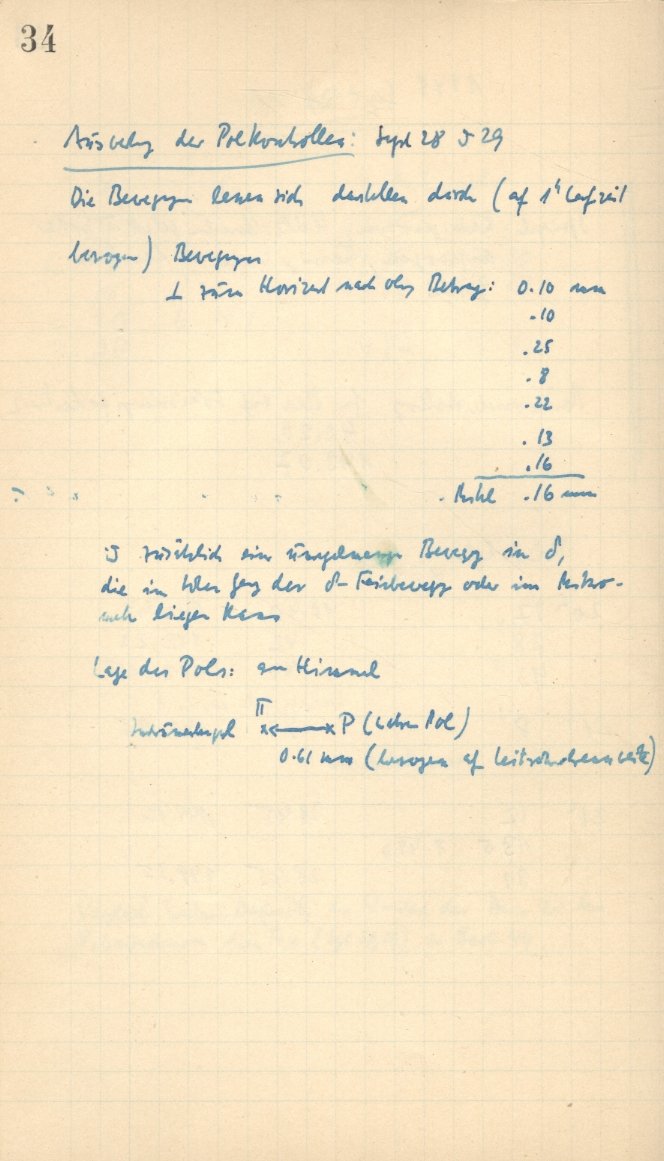 34
der Polkontrollen: Sept 28 u 29
Die Bewegungen lassen sich darstellen durch (auf 1h Laufzeit
bezogen) Bewegungen
⊥ zum Horizont nach oben Betrag: 0.10 mm
.10
.25
.8
.22
.13
.16
Mittel .16 mm
zusätzlich eine Bewegg in δ,
die im der δ-Feinbewegg oder im
liegen kann
Lage des Pols: am Himmel
Π x←x P (wahrer Pol)
0.61 mm (bezogen auf Leitrohrbrennweite)